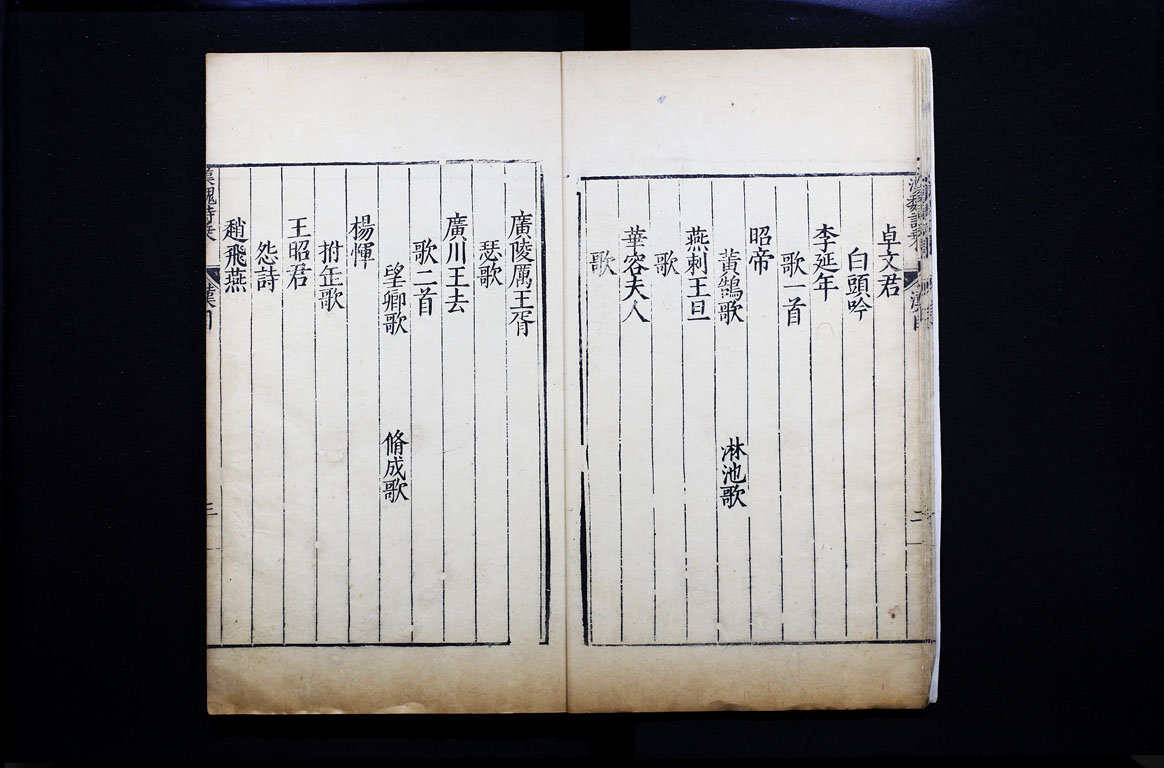 卓文君
白頭吟
李延年
歌一首
昭帝
黄鵠歌 淋池歌
燕刺王旦
歌
華容夫人
歌
廣陵厲王胥
瑟歌
廣川王去
歌二首
望卿歌 脩成歌
楊惲
拊缶歌
王昭君
怨詩
趙飛燕
漢魏詩乘
漢目
三